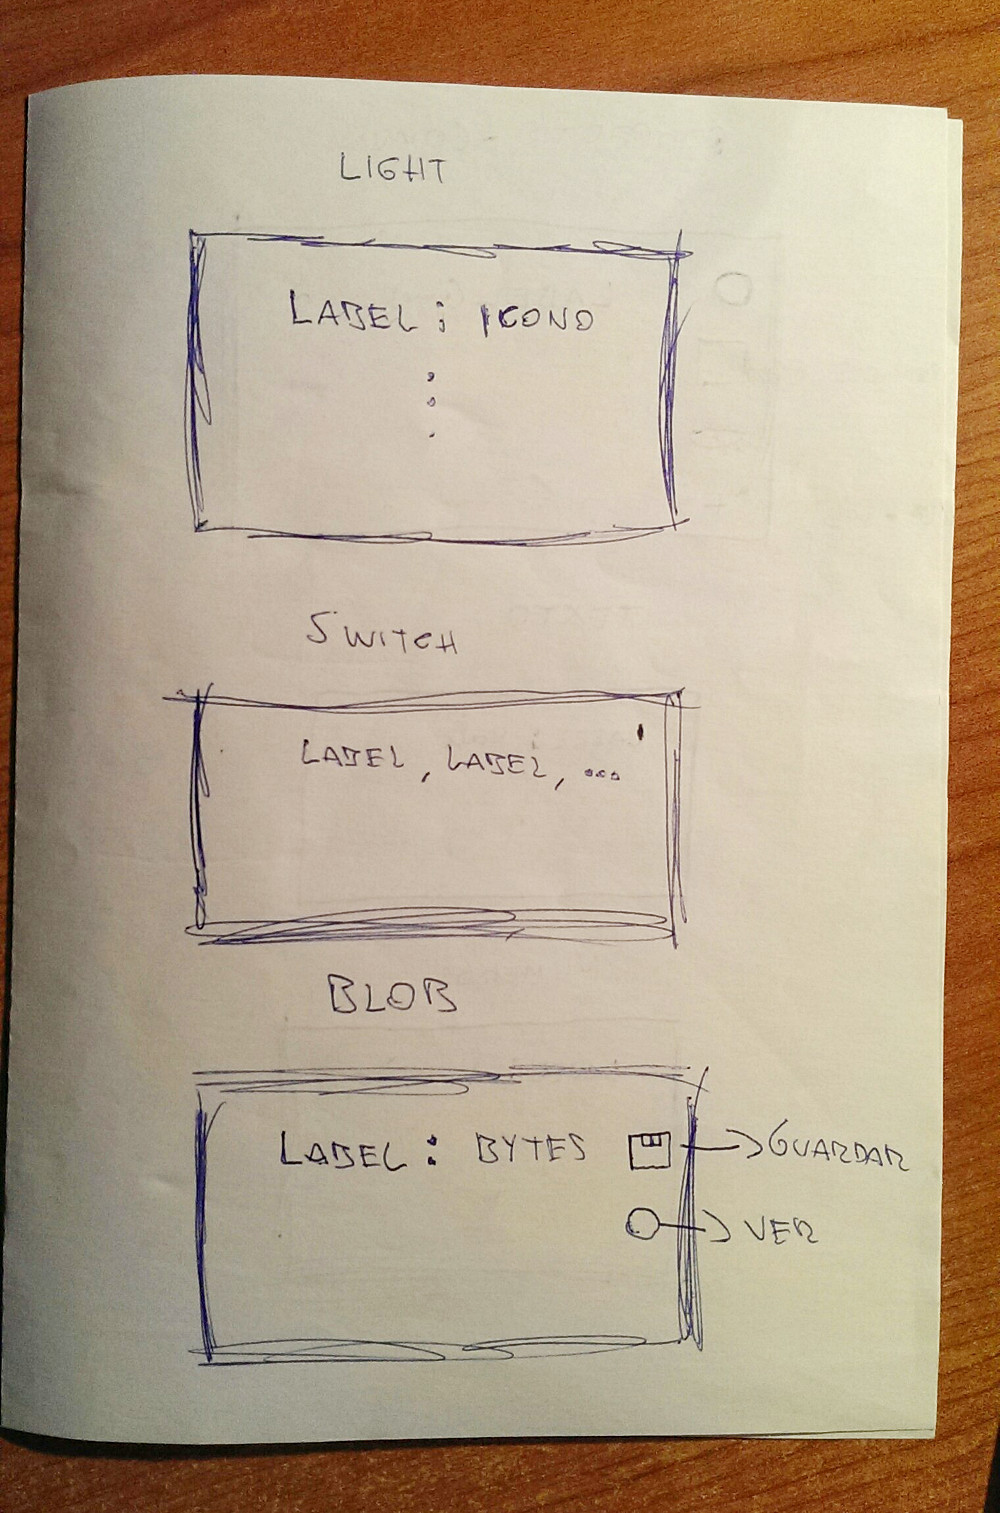 LIGHT
LABEL : ICONO
SWITCH
LABEL, LABEL, ...
BLOB
LABEL : BYTES → GUARDAR
→ VER